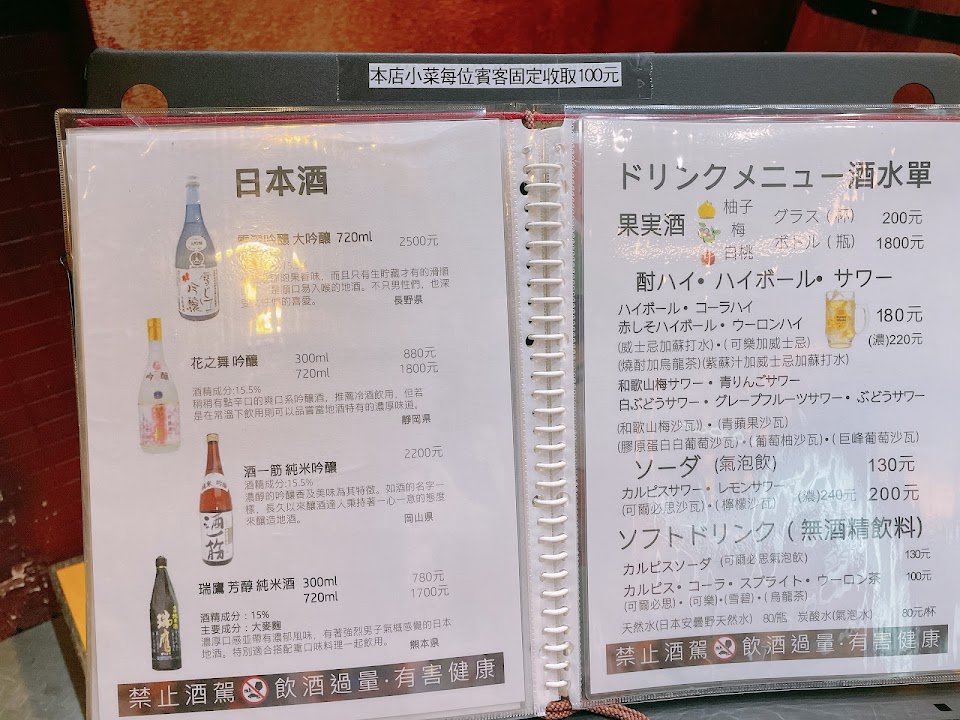 本店小菜每位賓客固定收取100元
日本酒
吟釀 大吟釀 720ml 2500元
的果香味，而且只有生貯藏才有的滑順
是順口易入喉的地酒。不只男性們，也深
們的喜愛。 長野県
花之舞 吟釀 300ml 880元
720ml 1800元
酒精成分:15.5%
稍稍有點辛口的爽口系吟釀酒，推薦冷酒飲用，但若
是在常溫下飲用則可以品嘗當地酒特有的濃厚味道。
靜岡県
2200元
酒一筋 純米吟釀
酒精成分:15.5%
濃醇的吟釀香及美味為其特徵。如酒的名字一
樣，長久以來釀酒達人秉持著一心一意的態度
來釀造地酒。 岡山県
瑞鷹 芳醇 純米酒 300ml 780元
720ml 1700元
酒精成分：15%
主要成分：大麥麴
濃厚口感並帶有濃郁風味，有著強烈男子氣概感覺的日本
地酒。特別適合搭配重口味料理一起飲用。 熊本県
禁止酒駕 飲酒過量·有害健康
ドリンクメニュー酒水單
果実酒
柚子
梅
白桃
グラス（杯） 200元
ボトル（瓶） 1800元
酎ハイ・ハイボール・サワー
ハイボール・コーラハイ 180元
赤しそハイボール・ウーロンハイ (濃)220元
(威士忌加蘇打水)・(可樂加威士忌)
(燒酎加烏龍茶)(紫蘇汁加威士忌加蘇打水)
和歌山梅サワー・青りんごサワー
白ぶどうサワー・グレープフルーツサワー・ぶどうサワー
(和歌山梅沙瓦)・(青蘋果沙瓦)
(膠原蛋白白葡萄沙瓦)・(葡萄柚沙瓦)・(巨峰葡萄沙瓦)
ソーダ (氣泡飲) 130元
カルピスサワー・レモンサワー
(可爾必思沙瓦)・(檸檬沙瓦) (濃)240元 200元
ソフトドリンク ( 無酒精飲料)
カルピスソーダ (可爾必思氣泡飲) 130元
カルピス・コーラ・スプライト・ウーロン茶 100元
(可爾必思)・(可樂)・(雪碧)・(烏龍茶)
天然水(日本安曇野天然水) 80/瓶 炭酸水(氣泡水) 80元/杯
禁止酒駕 飲酒過量·有害健康